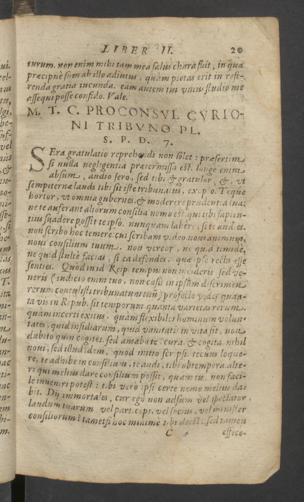 LIBER II. 20
turum. non enim mihi tam mea salus chara fuit, in qua
præcipue sum ab illo adiutus, quàm pietas erit in refe-
renda gratia iucunda. eum autem tui unius studio me
assequi posse confido. Vale.
M. T. C. PROCONSVL CVRIO-
NI TRIBVNO PL.
S. P. D. 7.
SEra gratulatio reprehendi non solet: præsertim
si nulla negligentia prætermissa est. longe enim
absum, audio sero. sed tibi & gratulor, &, ut
sempiternæ laudi tibi sit iste tribunatus, exopto. Teque
hortor, ut omnia gubernes, & moderere prudentia tua:
ne te auferant aliorum consilia. nemo est, qui tibi sapien-
tius suadere possit te ipso. nunquam labere, si te audies.
non scribo hoc temere. cui scribam video. novi animum,
novi consilium tuum. non vereor, ne quid timide,
ne quid stulte facias, si ea defendes, quæ ipse recta esse
senties. Quod in id Reip. tempus non incideris, sed ve-
neris (iudicio enim tuo, non casu in ipsum discrimen
rerum contulisti tribunatum tuum) profecto vides. quan-
ta vis in Repub. sit temporum: quanta varietas rerum:
quàm incerti exitus: quàm flexibiles hominum volun-
tates: quid insidiarum, quid vanitatis in vita sit, non
dubito quin cogites. sed amabo te, cura, & cogita. nihil
novi, sed illud idem, quod initio scripsi. tecum loque-
re, te adhibe in consilium, te audi, tibi obtempera. alte-
ri qui melius dare consilium possit, quàm tu, non faci-
le inveniri potest: tibi vero ipsi certe nemo melius da-
bit. Dij immortales, cur ego non adsum vel spectator
laudum tuarum, vel particeps, vel socius, vel minister
consiliorum? tametsi hoc minime tibi deest: sed tamen
C effice-